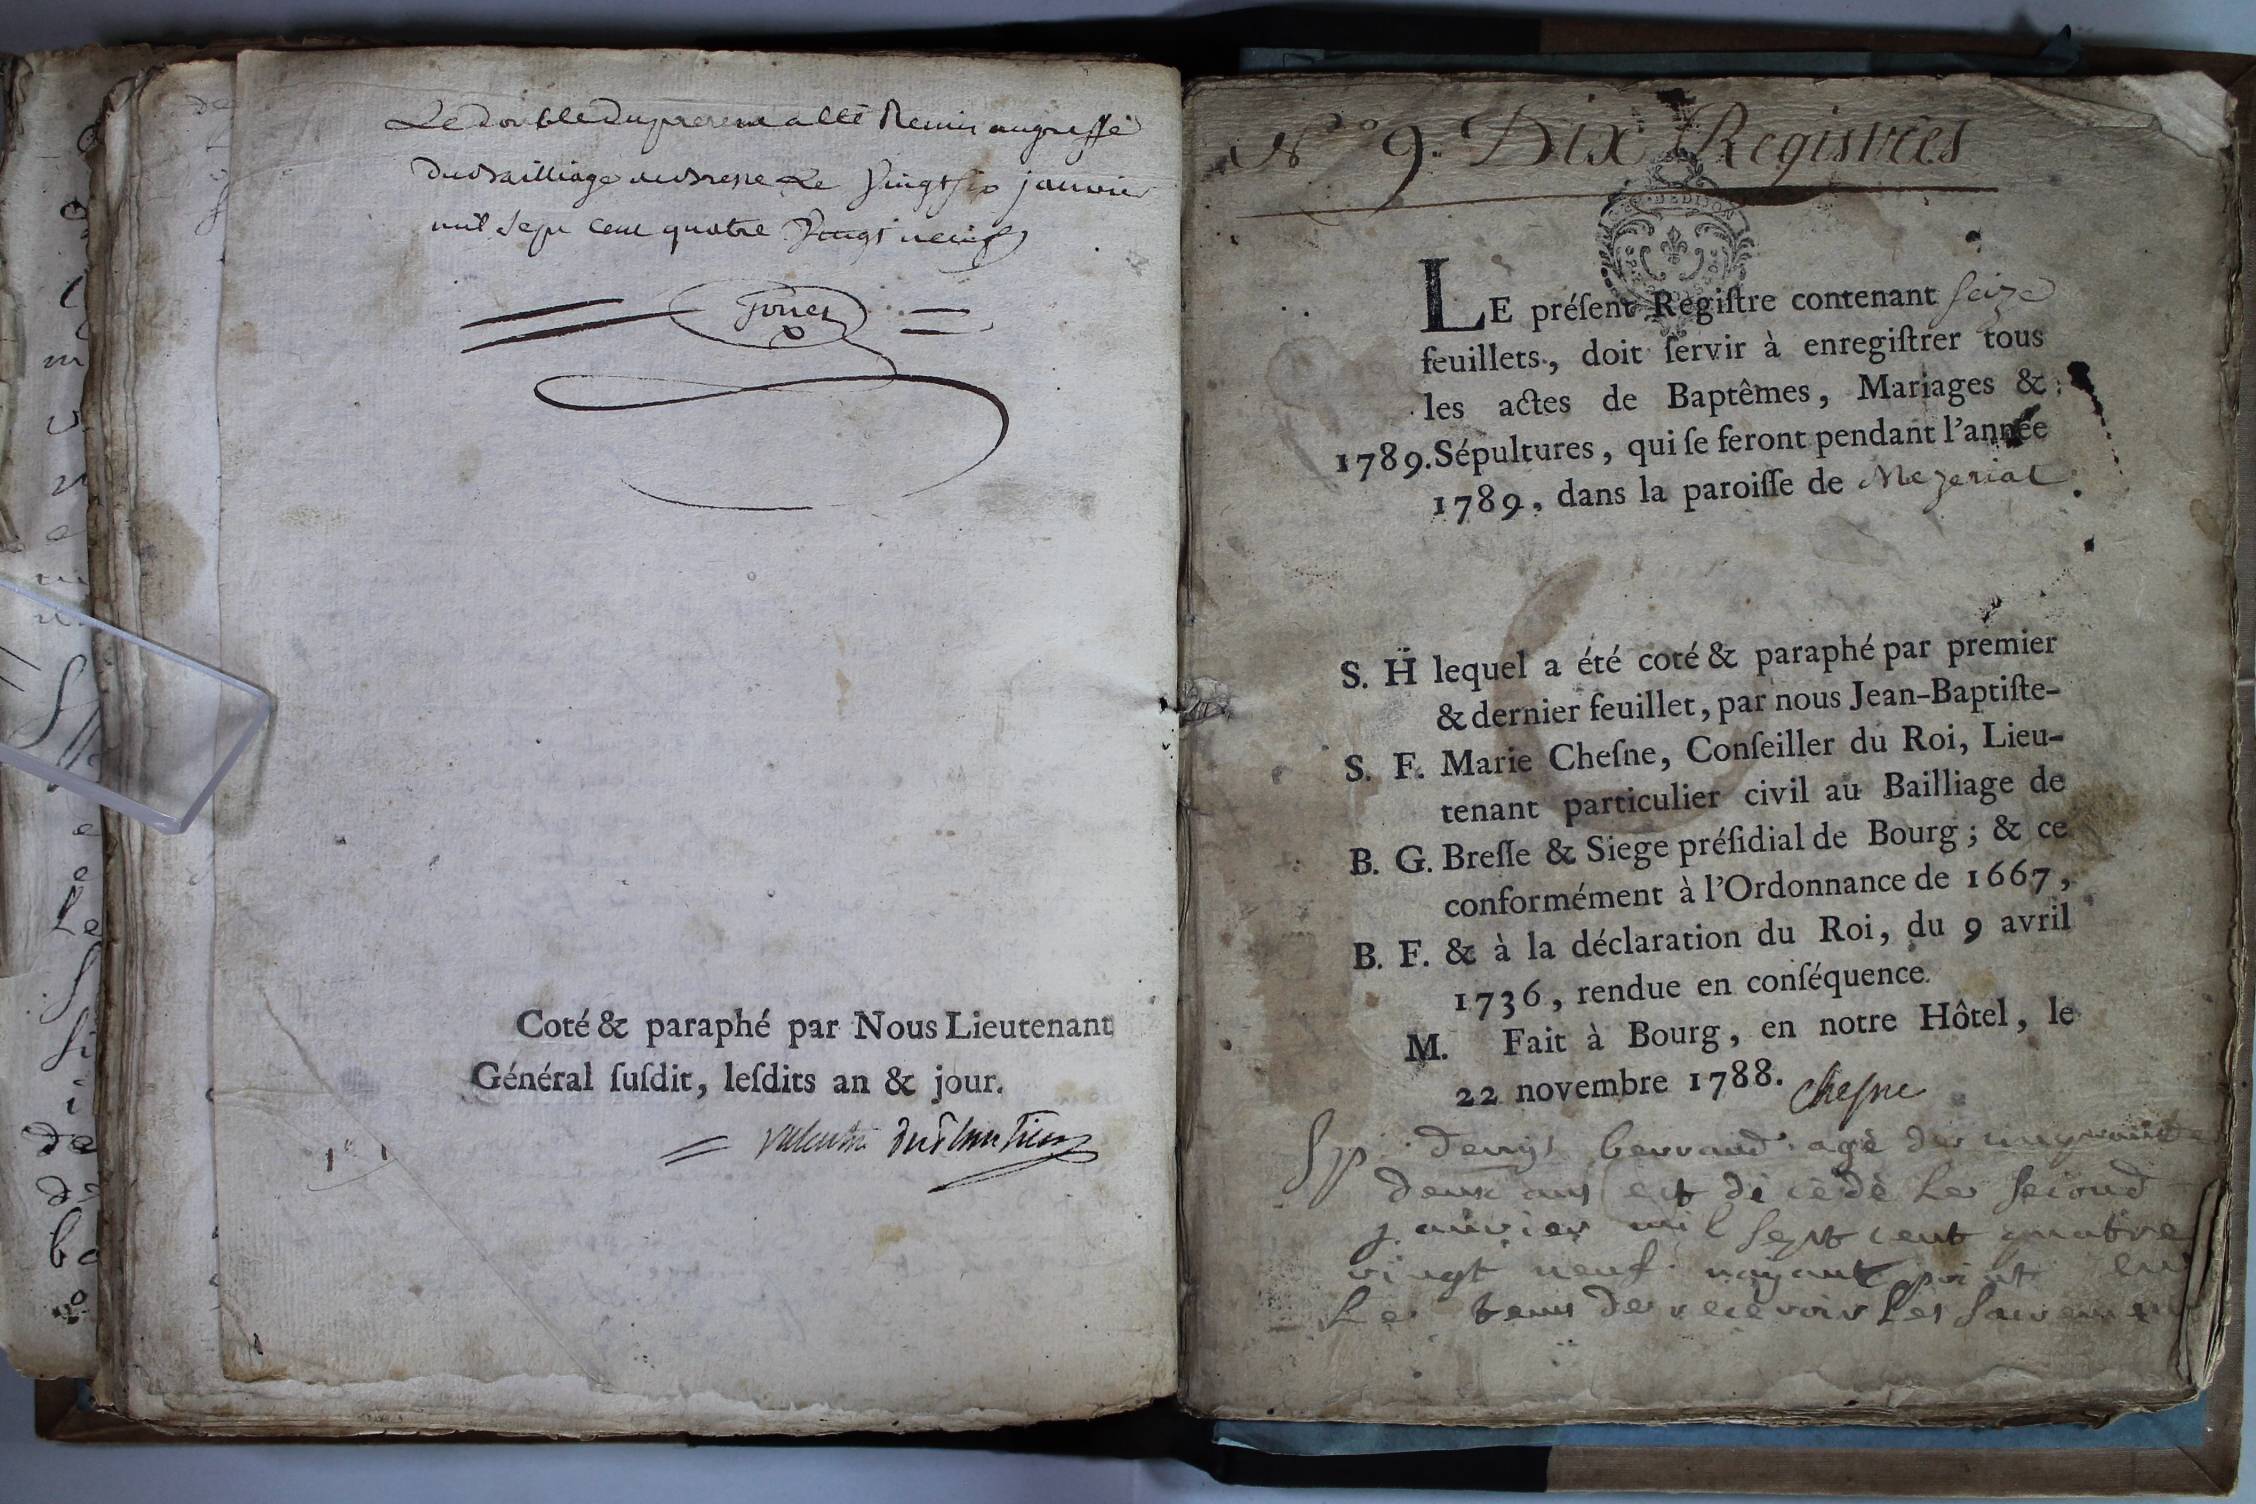 Le double du present a été Remis au greffe
du Bailliage de Bresse Le vingt six janvier
mil sept cent quatre Vingt neuf
Coté & paraphé par Nous Lieutenant
Général ſuſdit, leſdits an & jour.
N° 9. Dix Registres
LE préſent Regiſtre contenant seize
feuillets, doit ſervir à enregiſtrer tous
les actes de Baptêmes, Mariages &
1789. Sépultures, qui ſe feront pendant l'année
1789, dans la paroiſſe de Mezeriat
S. H lequel a été coté & paraphé par premier
& dernier feuillet, par nous Jean-Baptiſte-
S. F. Marie Cheſne, Conſeiller du Roi, Lieu-
tenant particulier civil au Bailliage de
B. G. Breſſe & Siege préſidial de Bourg ; & ce
conformément à l'Ordonnance de 1667,
B. F. & à la déclaration du Roi, du 9 avril
1736, rendue en conſéquence.
M. Fait à Bourg, en notre Hôtel, le
22 novembre 1788. Chesne
Sp. denys berraud agé de
deux ans est décèdé le second
janvier mil sept cent quatre
vingt neuf nayant point eu
Le tems de recevoir les sacremen